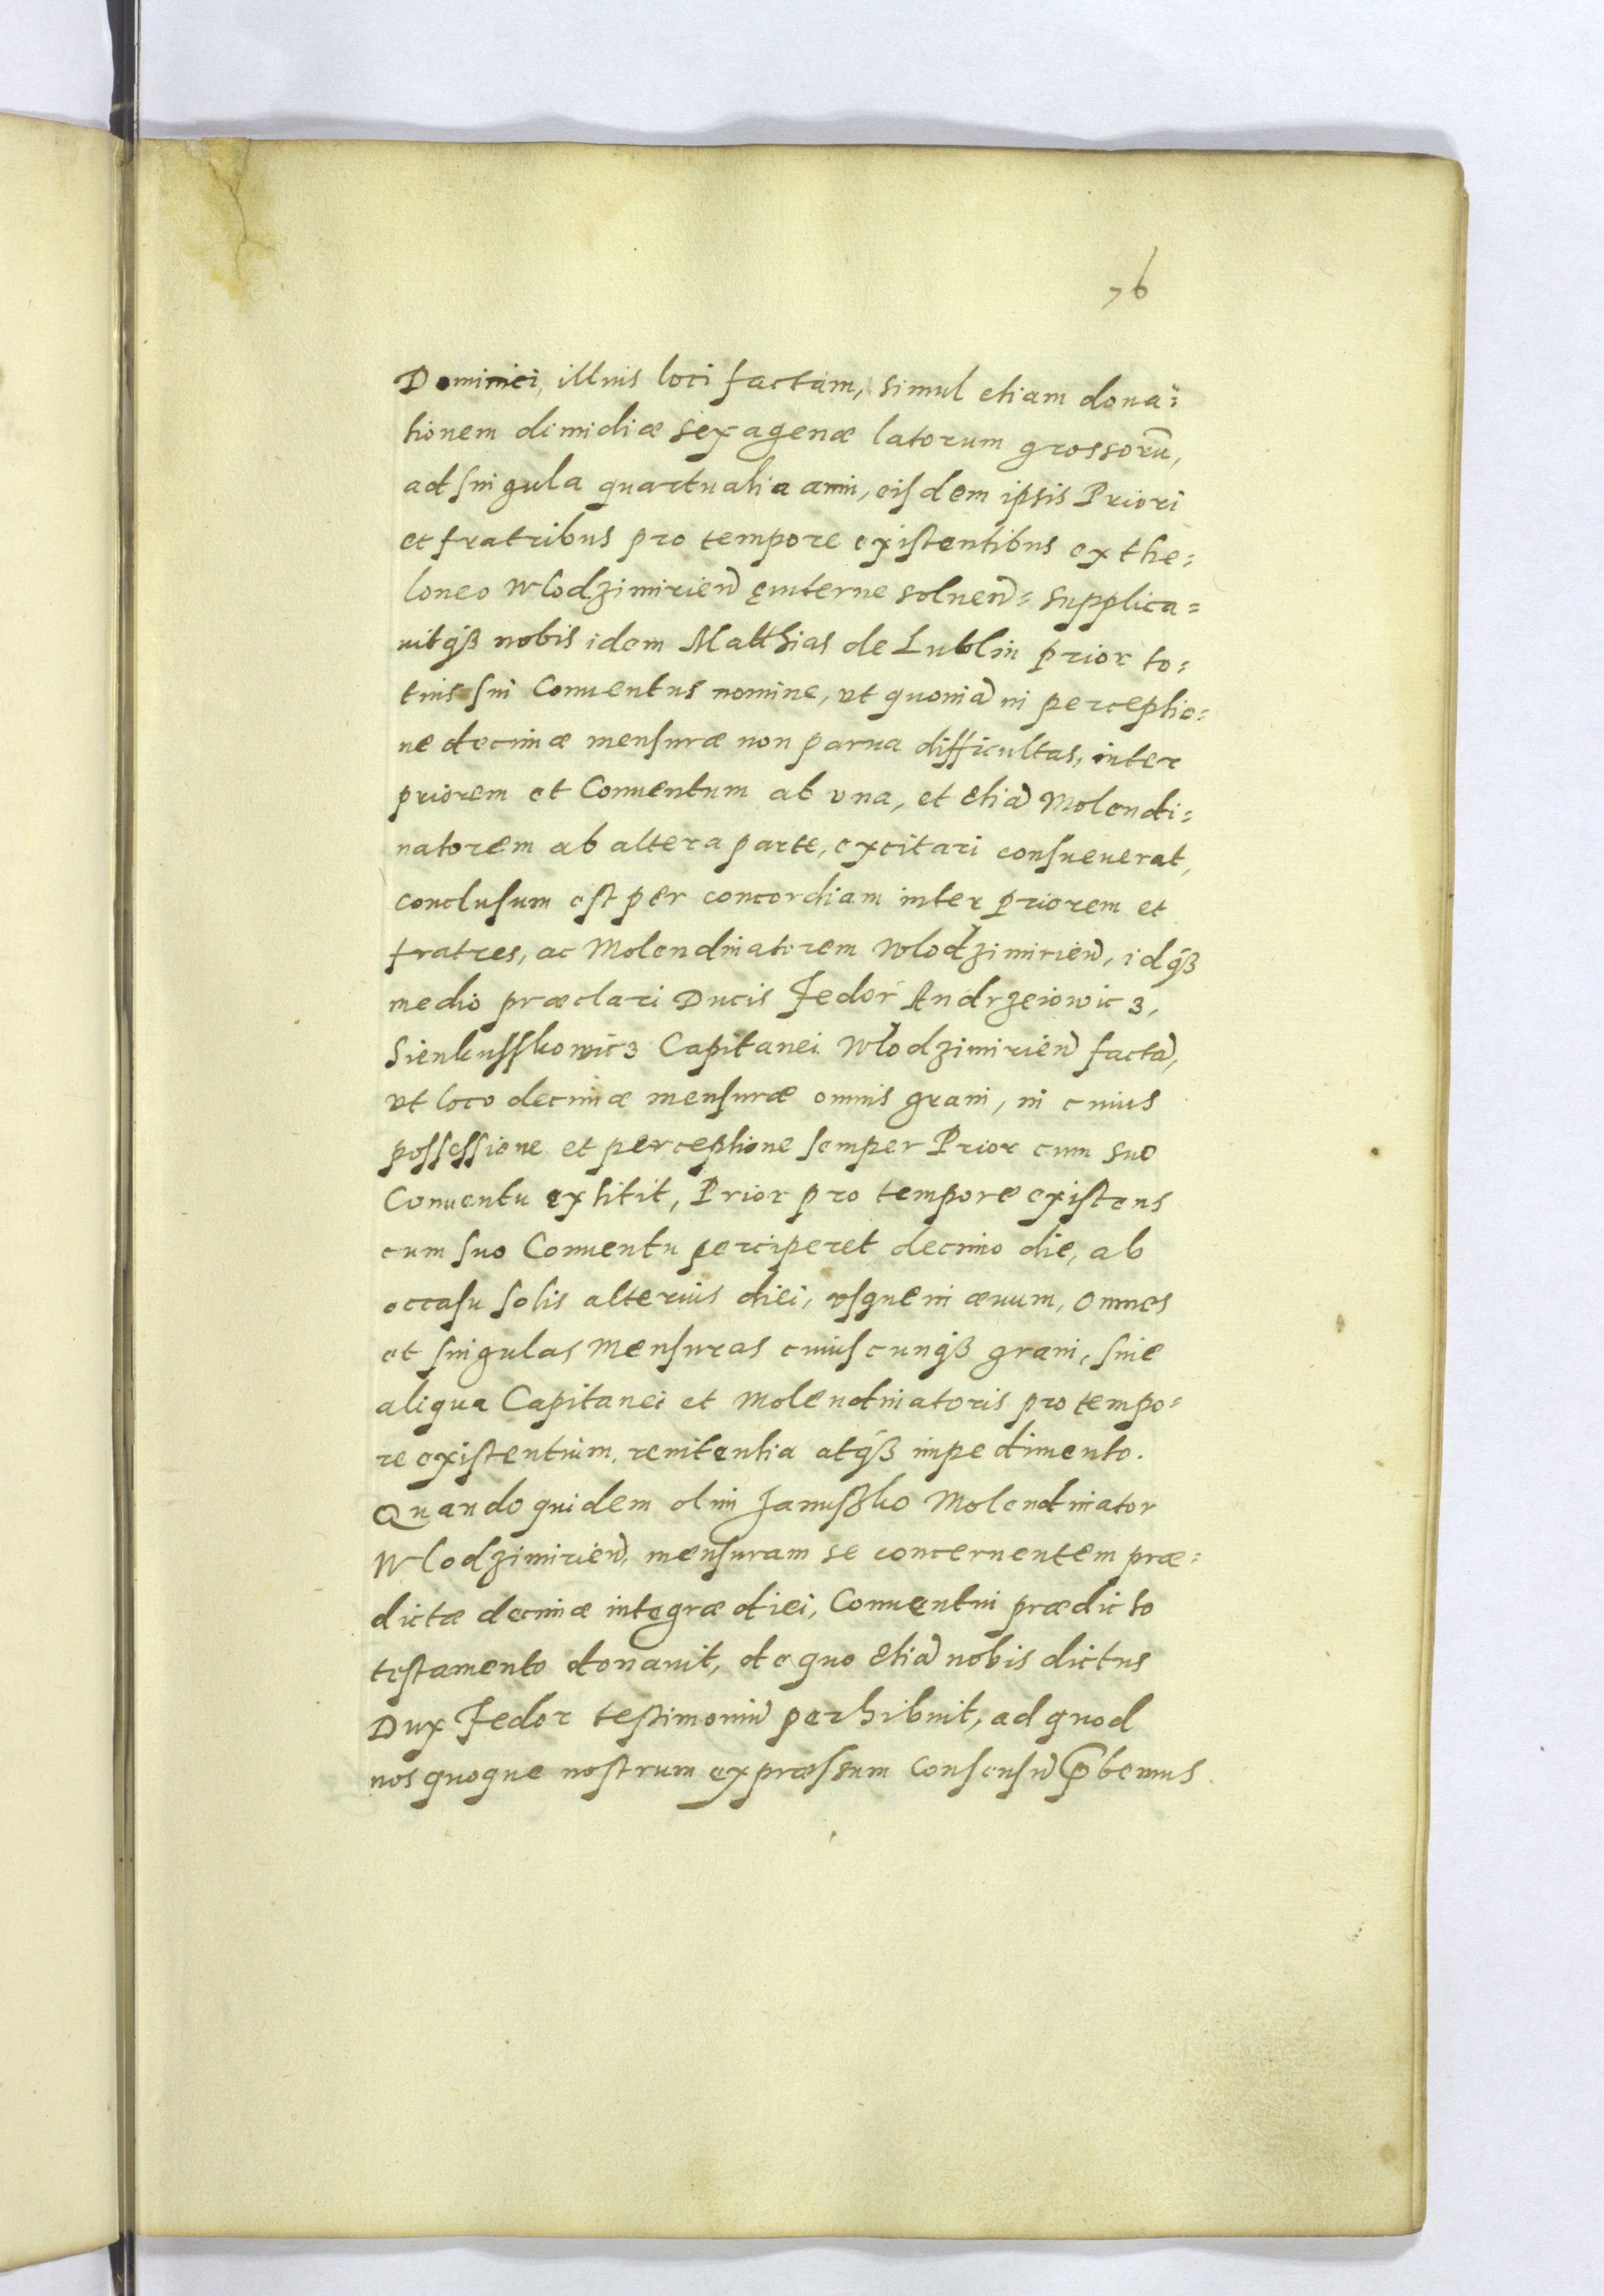 76
Dominici, illius loci factam, simul etiam dona=
tionem dimidiæ sexagenæ latorum grossorũ,
ad singula quartualia anni, eisdem ipsis Priori
et fratribus pro tempore existentibus ex the=
loneo Wlodzimirieñ solueñ= supplica=
uitq́ꝫ nobis idem Matthias de Lublin prior to=
tius sui Conuentus nomine, vt quoniã in perceptio=
ne decimæ mensuræ non parua difficultas, inter
priorem et Conuentum ab vna, et etiã Molendi=
natorem ab altera parte, excitari consueuerat,
conclusum est per concordiam inter priorem et
fratres, ac Molendinatorem Wlodzimirieñ, idq́ꝫ
medio præclari Ducis Fedor Andrzeiowicz,
Sienkusskowicz Capitanei Włodzimirieñ factã,
vt loco decimæ mensuræ omnis grani, in cuius
possessione et perceptione semper Prior cum suo
Conuentu extitit, Prior pro tempore existens
cum suo Conuentu perciperet decimo die, ab
occasu solis alterius diei, vsque in æuum, omnes
et singulas Mensuras cuiuscunq́ꝫ grani, sine
aliqua Capitanei et Molendinatoris pro tempo=
re existentium, renitentia atq́ꝫ impedimento.
Quando quidem olim Januszko Molendinator
Wlodzimirieñ, mensuram se concernentem præ=
dictæ decimæ integræ diei, Conuentui prædicto
testamento donauit, de quo etiã nobis dictus
Dux Fedor testimoniũ perhibuit, ad quod
nos quoque nostrum expræssum Consensũ p̃bemus